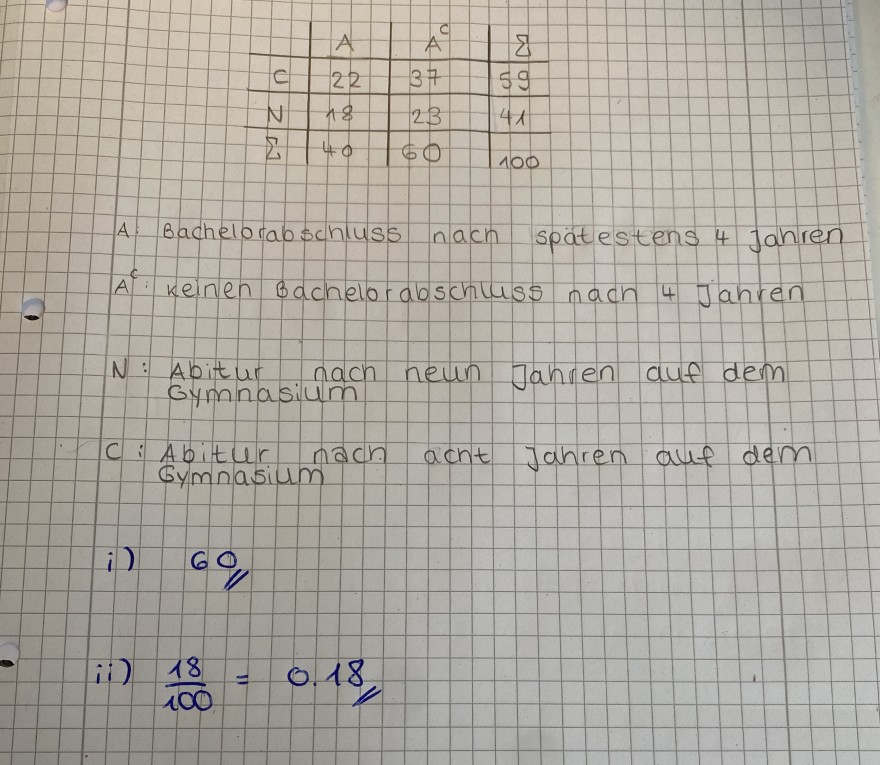 A A^C Σ
C 22 37 59
N 18 23 41
Σ 40 60 100
A: Bachelorabschluss nach spätestens 4 Jahren
A^C: keinen Bachelorabschluss nach 4 Jahren
N: Abitur nach neun Jahren auf dem
Gymnasium
C: Abitur nach acht Jahren auf dem
Gymnasium
i) 60
ii) 18/100 = 0.18